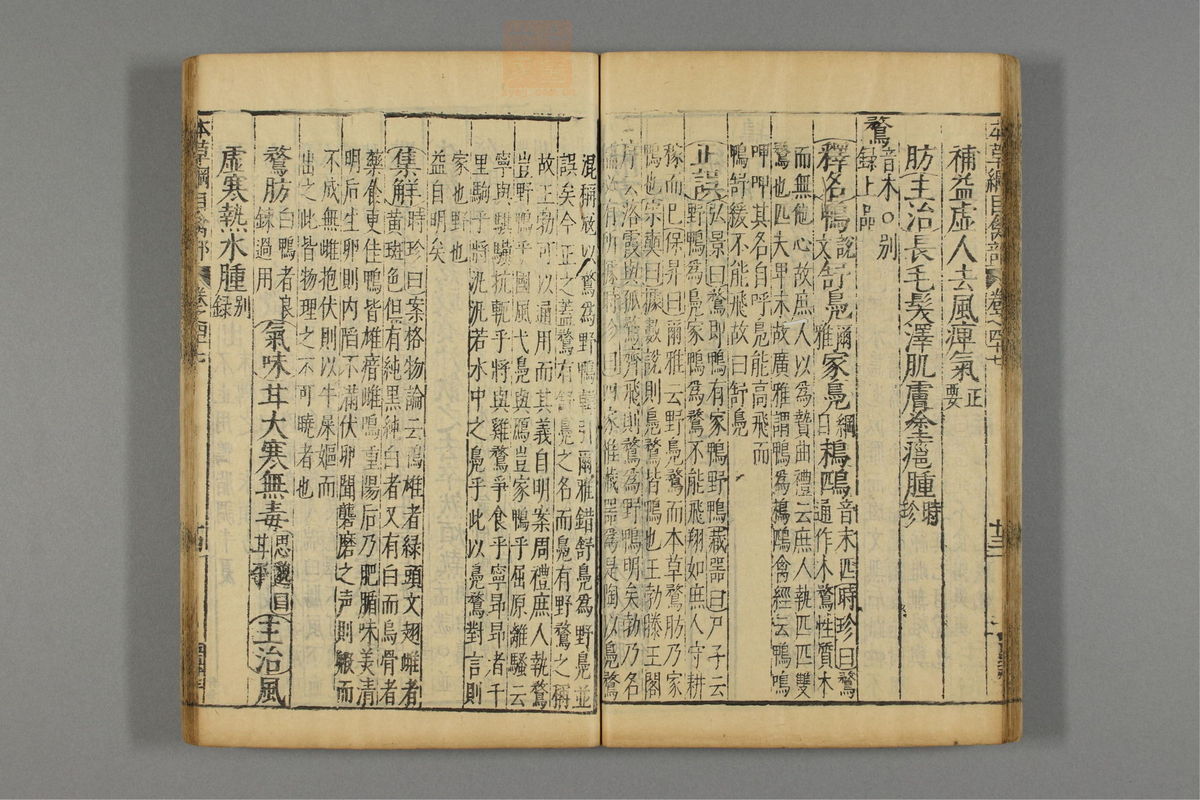 補益虛人去風痺氣正要
肪主治長毛髮澤肌膚塗癰腫時珍
鶩音木○别錄上品
釋名鴨說文舒鳧爾雅家鳧綱目鴄音末匹時珍曰鶩
通作木鶩性質木
而無他心故庶人以為贄曲禮云庶人執匹匹雙
鶩也匹夫卑末故廣雅謂鴨為鴄禽經云鴨鳴
呷呷其名自呼鳧能高飛而
鴨舒緩不能飛故曰舒鳧
正誤弘景曰鶩即鴨有家鴨野鴨藏器曰尸子云
野鴨為鳧家鴨為鶩不能飛翔如庶人守耕
稼而已保昇曰爾雅云野鳧鶩而本草鶩肪乃家
鴨也宗奭曰據數說則鳧鶩皆鴨也王勃滕王閣
序云落霞與孤鶩齊飛則鶩為野鴨明矣勃乃名
儒必有所據時珍曰四家惟藏器為是陶以鳧鶩
混稱故以鶩為野鴨韓引爾雅錯舒鳧為野鳧並
誤矣今正之蓋鶩有舒鳧之名而鳧有野鶩之稱
故王勃可以通用而其義自明案周禮庶人執鶩
豈野鴨乎國風弋鳧與鴈豈家鴨乎屈原離騷云
寧與騏驥抗軛乎將與雞鶩爭食乎寧昂昂若千
里駒乎將汎汎若水中之鳧乎此以鳧鶩對言則
家也野也
益自明矣
集解時珍曰案格物論云鴨雄者綠頭文翅雌者
黃斑色但有純黑純白者又有白而烏骨者
藥食更佳鴨皆雄瘖雌鳴重陽后乃肥腯味美清
明后生卵則内䧟不滿伏卵聞礱磨之声則毈而
不成無雌抱伏則以牛屎嫗而
出之此皆物理之不可曉者也
鶩肪白鴨者良鍊過用氣味甘大寒無毒思邈曰甘平主治風
虛寒熱水腫别錄